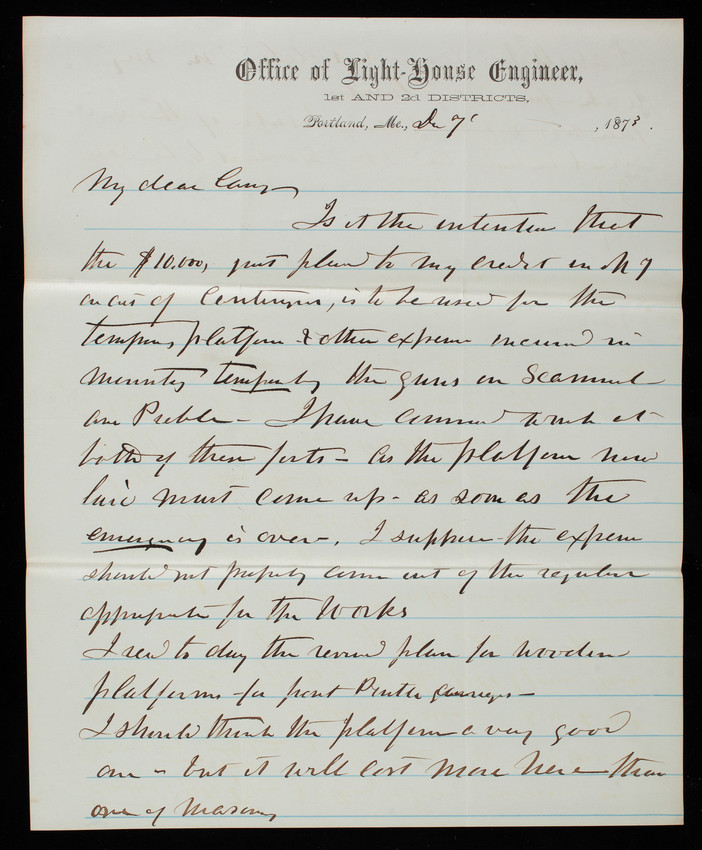 Office of Light-House Engineer,
1st AND 2d DISTRICTS,
Portland, Me., Dec 7, 1873.
My dear Casey
Is it the intention that
the $10,000, just placed to my credit in N Y
on acct of Contingencies, is to be used for the
temporary platforms & other expense incurred in
mounting temporarily the guns on Scammel
and Preble - I have commenced work at
both of these forts - as the platforms now
laid must come up - as soon as the
emergency is over -. I suppose the expense
should not properly come out of the regular
appropriation for the Works
I recd to day the revised plan for wooden
platforms for front Pintle carriages -
I should think the platform a very good
one - but it will cost more here than
one of Masonry